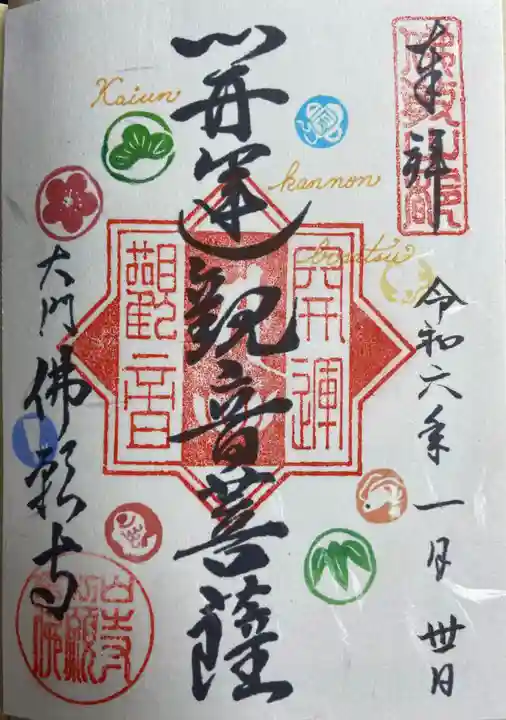 奉拝
令和六年一月卅日
開運観音菩薩
Kaiun
kannon
bosatsu
開運
觀音
大門
佛願寺